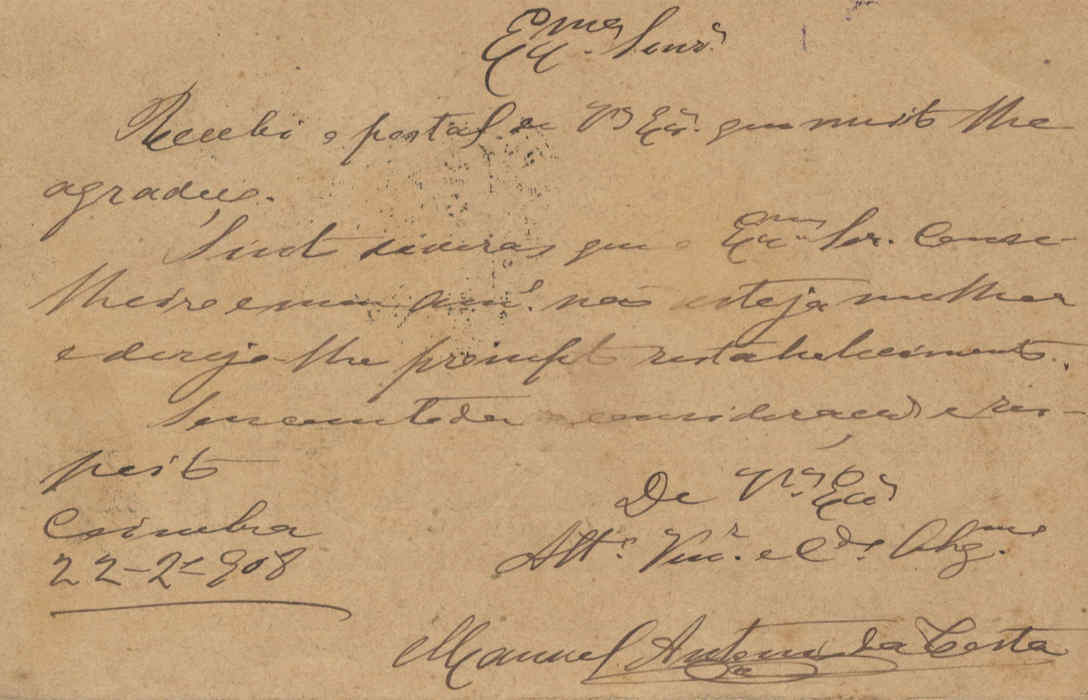 Exmos Senrs
Recebi o postal de V Exa. que muito lhe
agradeço.
Sinto deveras que o Exmo Sr. Conse-
lheiro e meu am.o não esteja melhor
e desejo-lhe prompto restabelecimento.
Sou com toda a consideração e res-
peito
De V.as Exas
Coimbra
Att.o Ven.r e C.do Obg.mo
22-2-908
Manuel Antonio da Costa